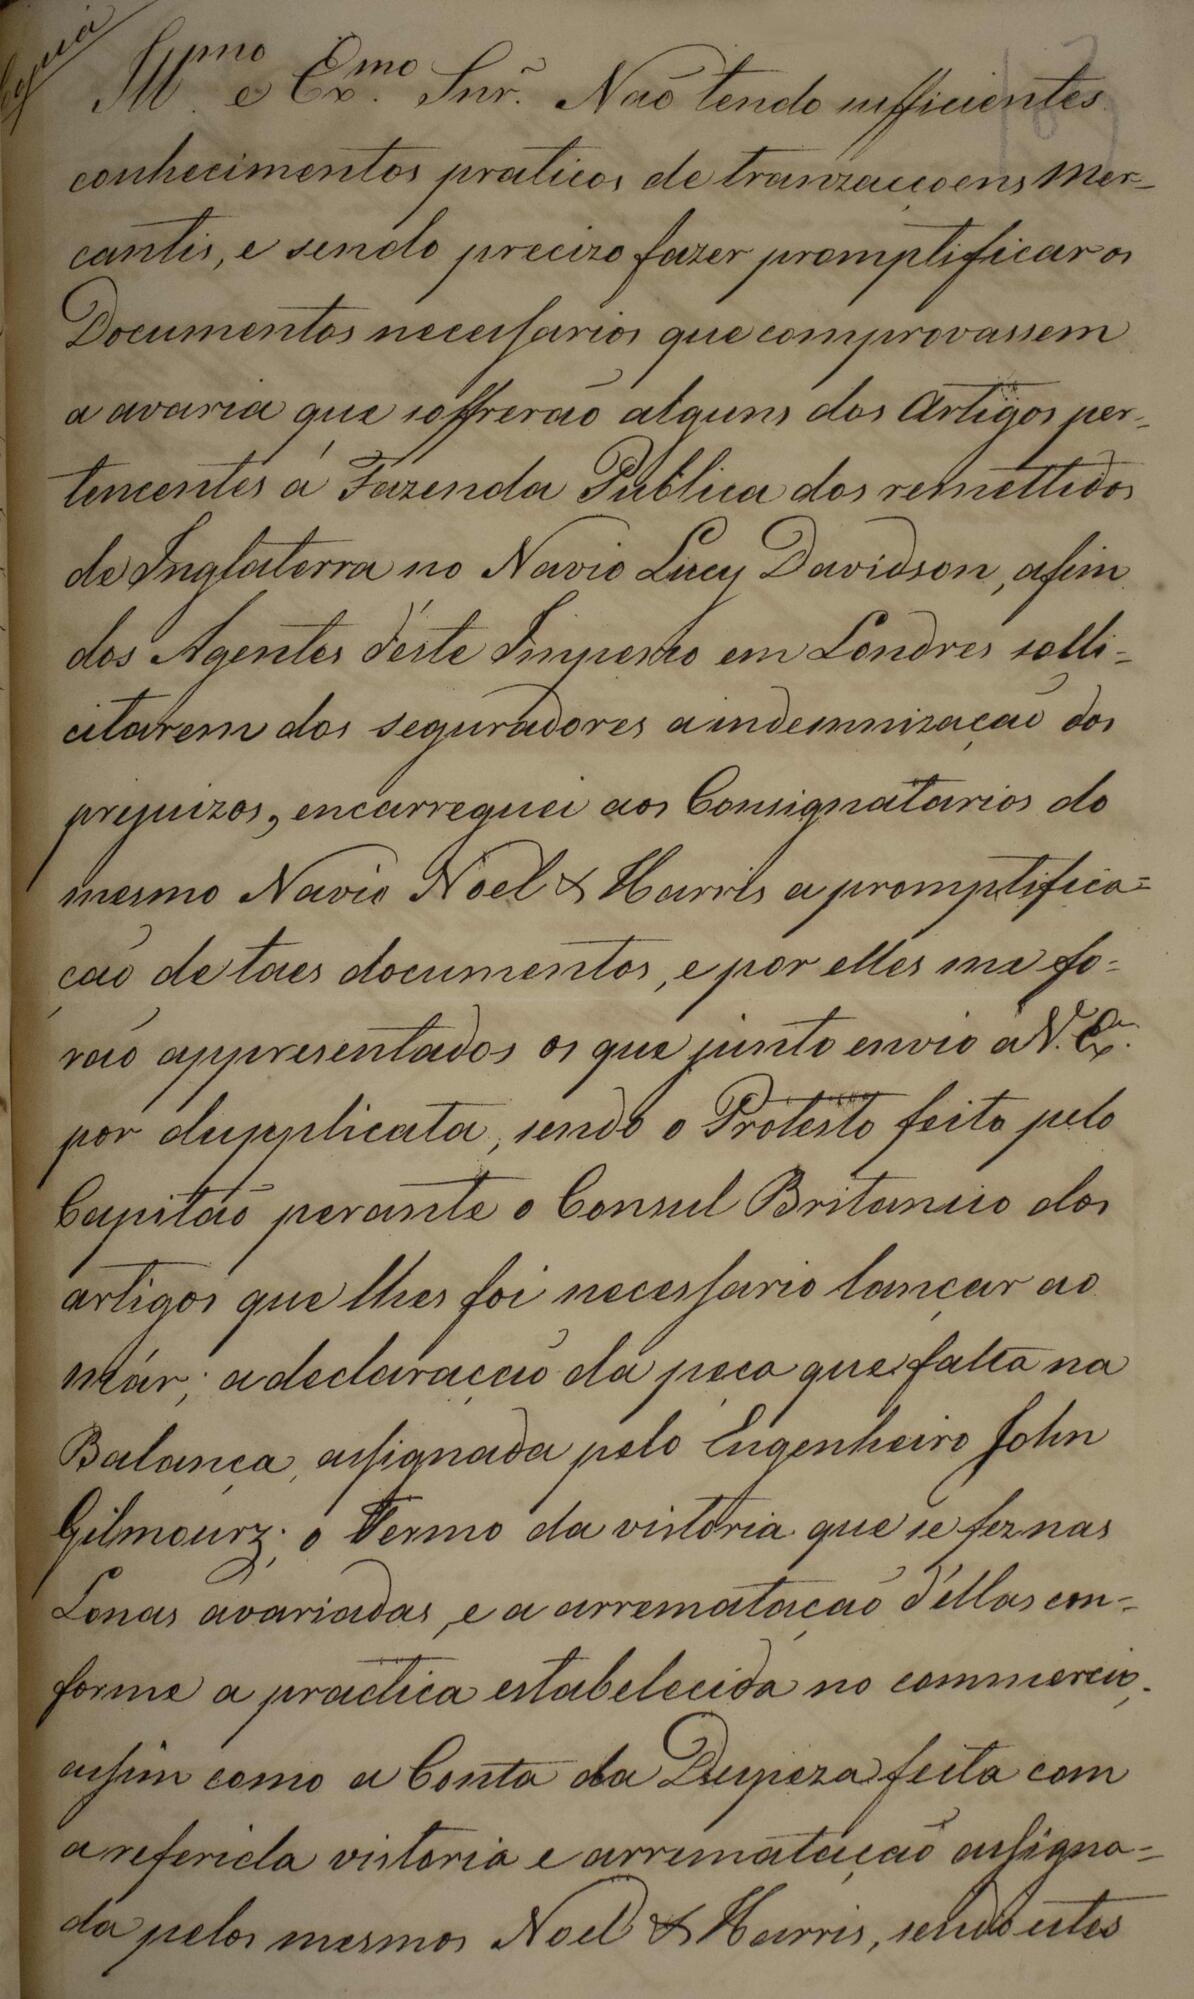 Copia
Illmo e Exmo. Snr. Não tendo sufficientes
conhecimentos praticos de tranzacçoens Mer-
cantis, e sendo precizo fazer promptificar os
Documentos necessarios que comprovassem
a avaria que soffrerão alguns dos Artigos per-
tencentes á Fazenda Publica dos remettidos
de Inglaterra no Navio Lucy Davidson, afim
dos Agentes d'éste Imperio em Londres solli-
citarem dos seguradores a indemnização dos
prejuizos, encarreguei aos Consignatarios do
mesmo Navio Noel & Harris a promptifica-
ção de taes documentos, e por elles me fo-
rão appresentados os que junto envio a V. Exa.
por dupplicata, sendo o Protesto feito pelo
Capitão perante o Consul Britanico dos
artigos que lhes foi necessario lançar ao
már; a declaração da peça que falta na
Balança, assignada pelo Engenheiro John
Gilmourz; o Termo da vistoria que se fez nas
Lonas avariadas, e a arrematação d'éllas con-
forme a practica estabelecida no commercio,
assim como a Conta da Despeza feita com
a referida vistoria e arrematação assigna-
da pelos mesmos Noel & Harris, sendo estes